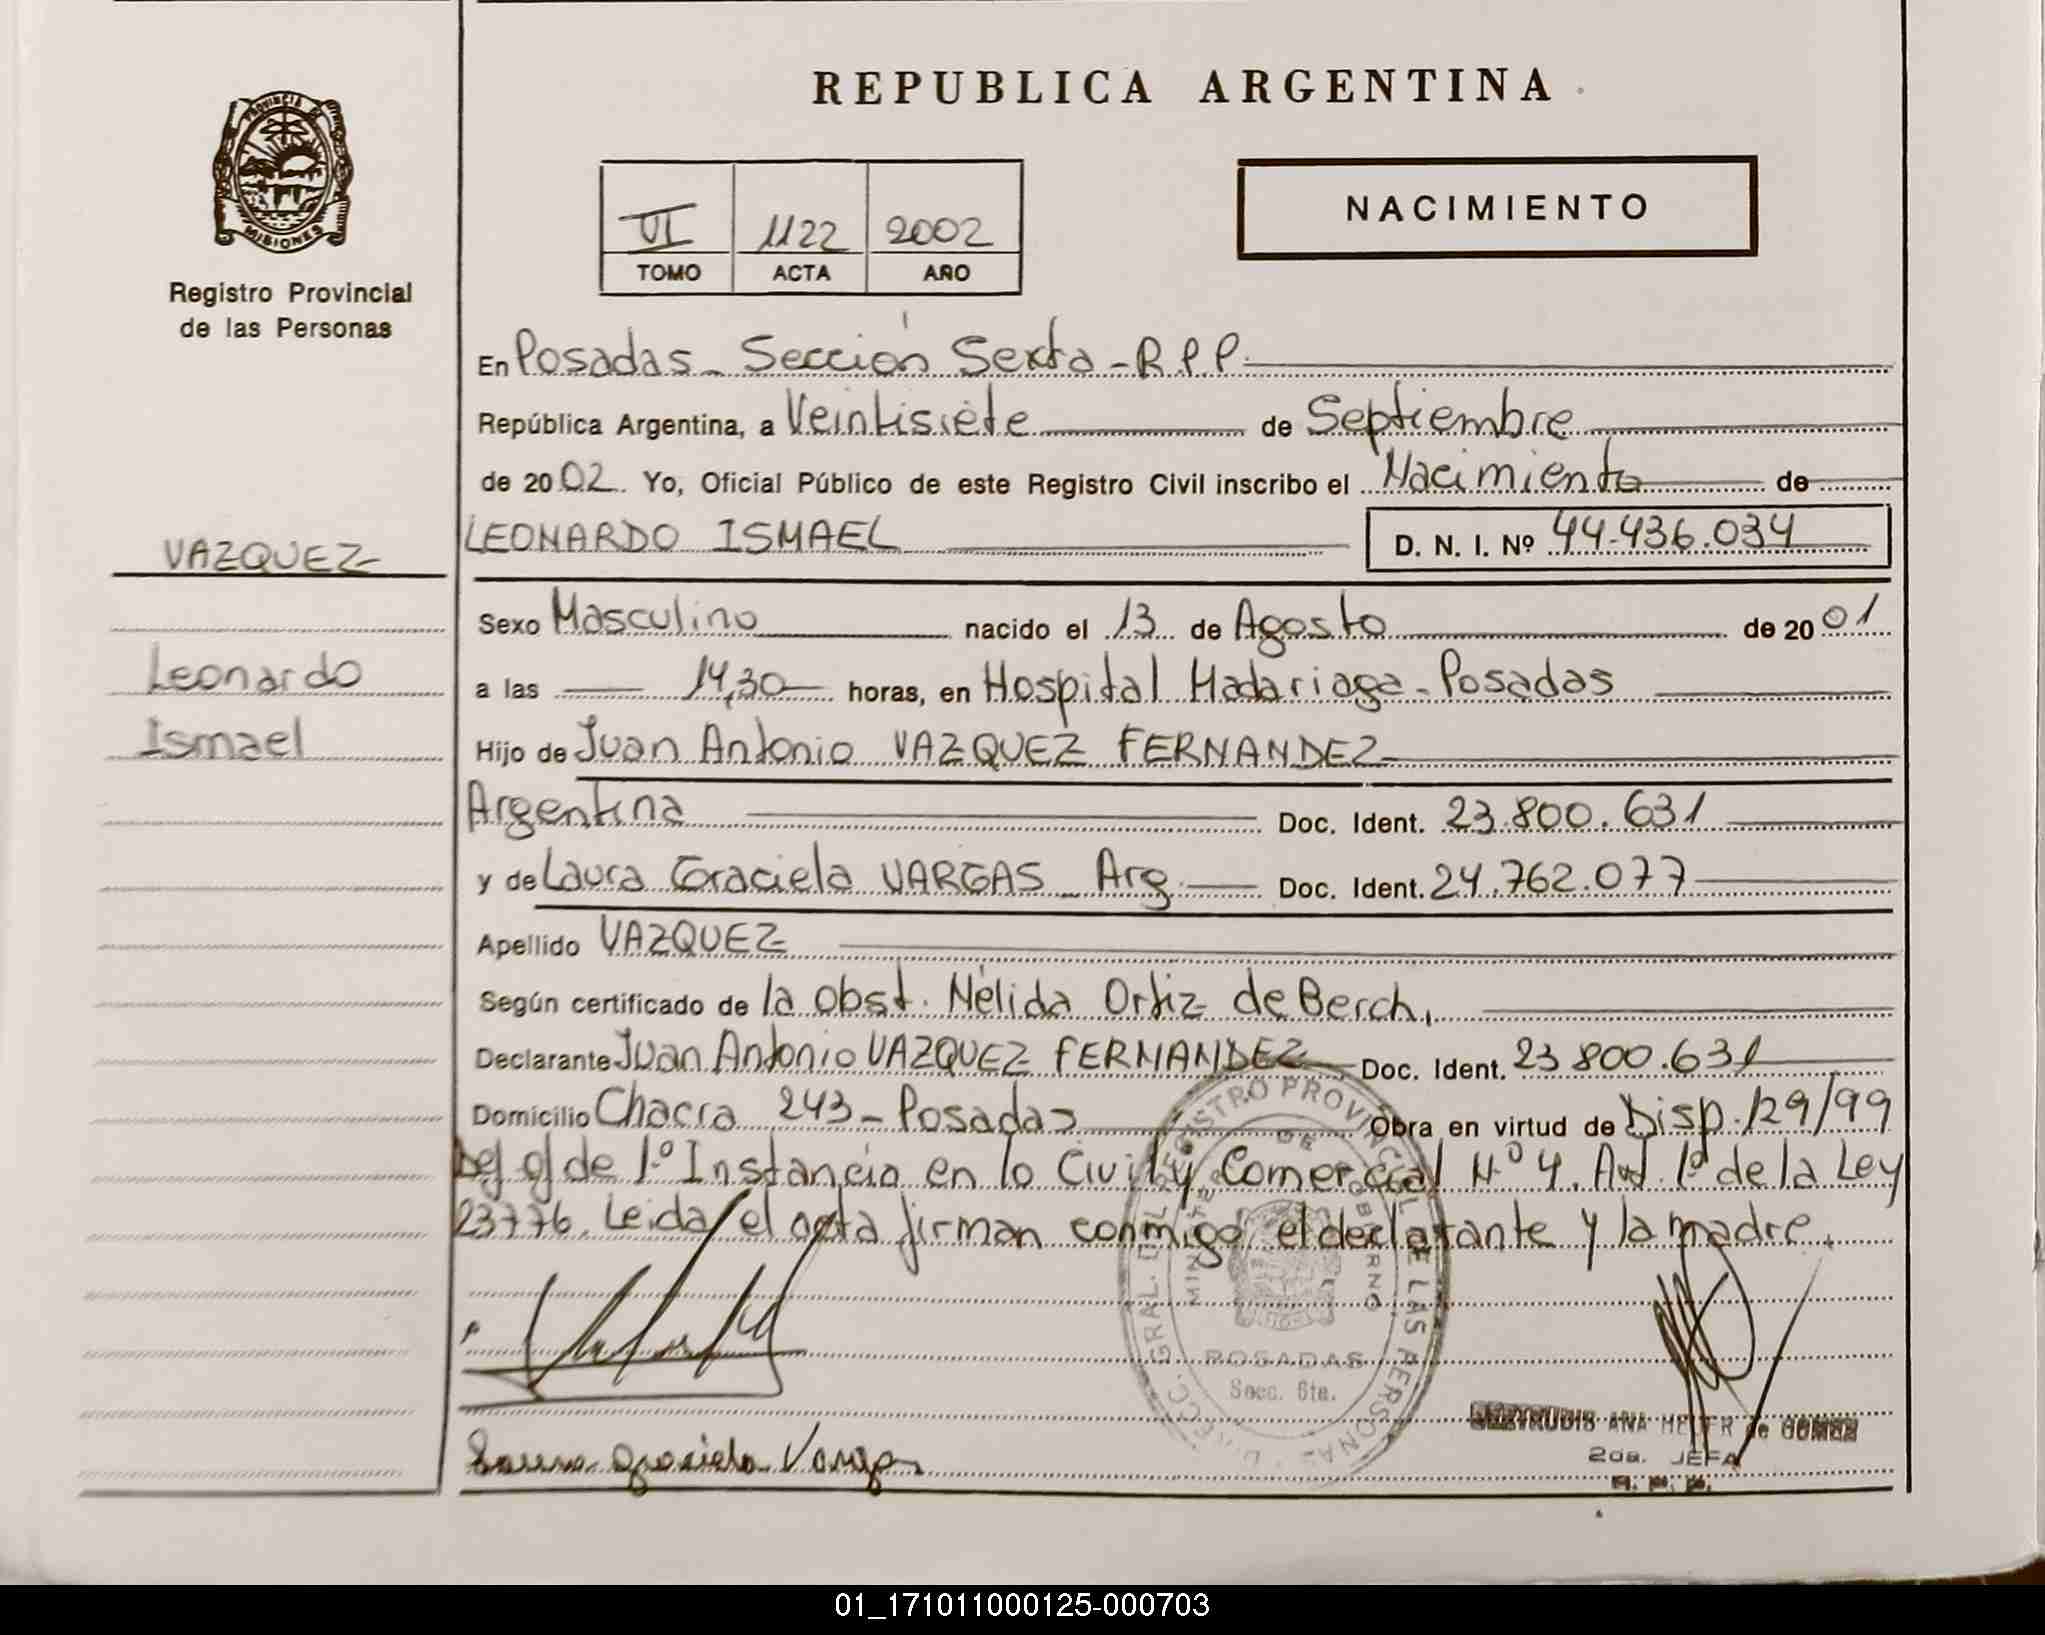 REPUBLICA ARGENTINA
PROVINCIA DE
MISIONES
Registro Provincial
de las Personas
VI 1122 2002
TOMO ACTA AÑO
NACIMIENTO
En Posadas - Sección Sexta - R.P.P.
República Argentina, a Veintisiete de Septiembre
de 2002. Yo, Oficial Público de este Registro Civil inscribo el Nacimiento de
LEONARDO ISMAEL D. N. I. Nº 44.436.034
VAZQUEZ
Leonardo
Ismael
Sexo Masculino nacido el 13 de Agosto de 2001
a las 14,30 horas, en Hospital Madariaga - Posadas
Hijo de Juan Antonio VAZQUEZ FERNANDEZ
Argentina Doc. Ident. 23.800.631
y de Laura Graciela VARGAS - Arg. Doc. Ident. 24.762.077
Apellido VAZQUEZ
Según certificado de la obst. Nélida Ortiz de Berch,
Declarante Juan Antonio VAZQUEZ FERNANDEZ Doc. Ident. 23 800.631
Domicilio Chacra 243 - Posadas Obra en virtud de Disp. 129/99
de 1º Instancia en lo Civil y Comercial Nº 4. 1º de la Ley
23776. Leida el acta firman conmigo el declarante y la madre.
DIRECC. GRAL. DEL REGISTRO PROVINCIAL DE LAS PERSONAS
MINISTERIO DE GOBIERNO
POSADAS
Secc. 6ta.
Laura Graciela Vargas
GERTRUDIS ANA de GOMEZ
2da. JEFA
R. P. P.
01_171011000125-000703